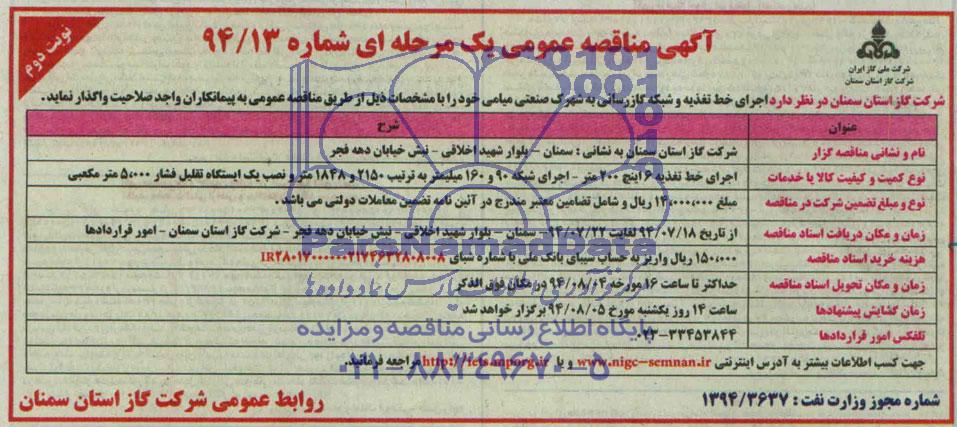 آگهی مناقصه عمومی یک مرحله ای شماره ۹۴/۱۳
نوبت دوم
شرکت ملی گاز ایران
شرکت گاز استان سمنان
شرکت گاز استان سمنان در نظر دارد اجرای خط تغذیه و شبکه گازرسانی به شهرک صنعتی میامی خود را با مشخصات ذیل از طریق مناقصه عمومی به پیمانکاران واجد صلاحیت واگذار نماید.
عنوان شرح
نام و نشانی مناقصه گزار شرکت گاز استان سمنان به نشانی : سمنان – بلوار شهید اخلاقی – نبش خیابان دهه فجر
نوع کمیت و کیفیت کالا یا خدمات اجرای خط تغذیه ۶ اینچ ۲۰۰ متر – اجرای شبکه ۹۰ و ۱۶۰ میلیمتر به ترتیب ۲۱۵۰ و ۱۸۴۸ متر و نصب یک ایستگاه تقلیل فشار ۵،۰۰۰ متر مکعبی
نوع و مبلغ تضمین شرکت در مناقصه مبلغ ۱۴،۰۰۰،۰۰۰ ریال و شامل تضامین معتبر مندرج در آئین نامه تضمین معاملات دولتی می باشد .
زمان و مکان دریافت اسناد مناقصه از تاریخ ۹۴/۰۷/۱۸ لغایت ۹۴/۰۷/۲۲ سمنان – بلوار شهید اخلاقی – نبش خیابان دهه فجر – شرکت گاز استان سمنان – امور قراردادها
هزینه خرید اسناد مناقصه ۱۵۰،۰۰۰ ریال واریز به حساب سیبای بانک ملی با شماره شبای
زمان و مکان تحویل اسناد مناقصه حداکثر تا ساعت ۱۶ مورخه ۹۴/۰۸/۰۴ در مکان فوق الذکر
زمان گشایش پیشنهادها ساعت ۱۴ روز یکشنبه مورخ ۹۴/۰۸/۰۵ برگزار خواهد شد
تلفکس امور قراردادها ۰۲۳–۳۳۴۵۳۸۴۴
جهت کسب اطلاعات بیشتر به آدرس اینترنتی www.nigc-semnan.ir و یا http://iets.mporg.ir مراجعه فرمائید.
شماره مجوز وزارت نفت : ۱۳۹۴/۳۶۳۷
روابط عمومی شرکت گاز استان سمنان
ParsNamadData
پایگاه اطلاع رسانی مناقصه و مزایده
۰۲۱–۸۸۳۴۹۶۷۰–۵